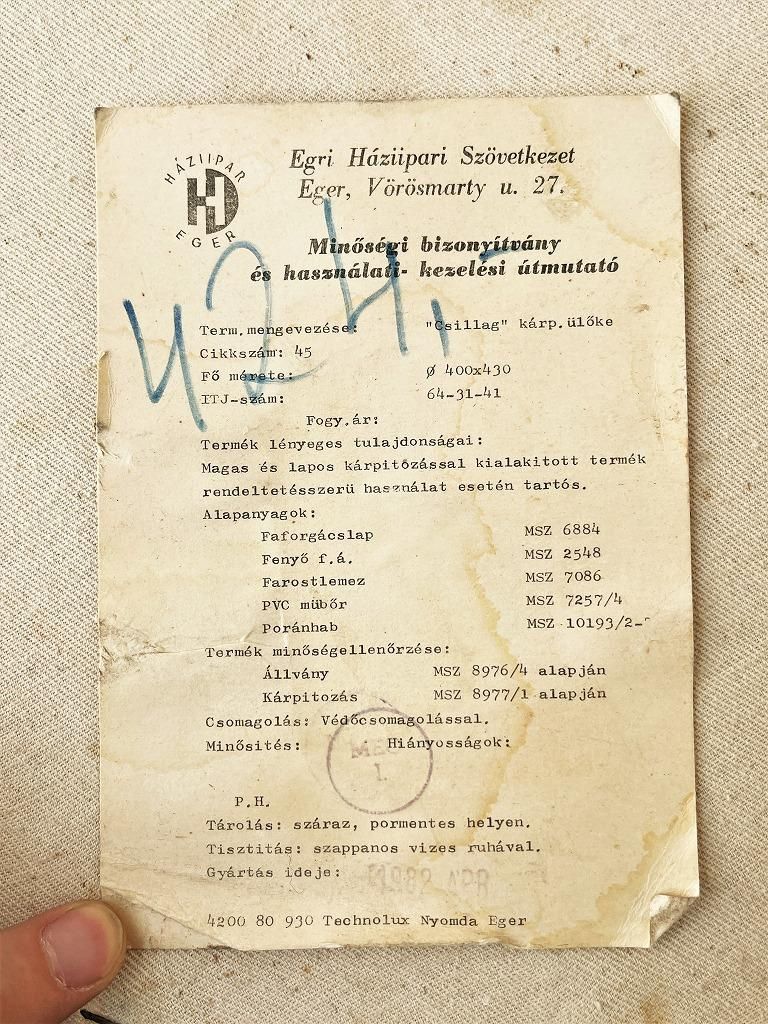 HÁZIIPAR
EGER
Egri Háziipari Szövetkezet
Eger, Vörösmarty u. 27.
Minőségi bizonyítvány
és használati- kezelési útmutató
424,-
Term.mengevezése: "Csillag" kárp.ülőke
Cikkszám: 45
Fő mérete: Ø 400x430
ITJ-szám: 64-31-41
Fogy.ár:
Termék lényeges tulajdonságai:
Magas és lapos kárpitózással kialakitott termék
rendeltetésszerü használat esetén tartós.
Alapanyagok:
Faforgácslap MSZ 6884
Fenyő f.á. MSZ 2548
Farostlemez MSZ 7086
PVC mübőr MSZ 7257/4
Poránhab MSZ 10193/2-
Termék minőségellenőrzése:
Állvány MSZ 8976/4 alapján
Kárpitozás MSZ 8977/1 alapján
Csomagolás: Védőcsomagolással.
Minősités: Hiányosságok:
MEO
1.
P.H.
Tárolás: száraz, pormentes helyen.
Tisztitás: szappanos vizes ruhával.
Gyártás ideje: 1982 APR
4200 80 930 Technolux Nyomda Eger